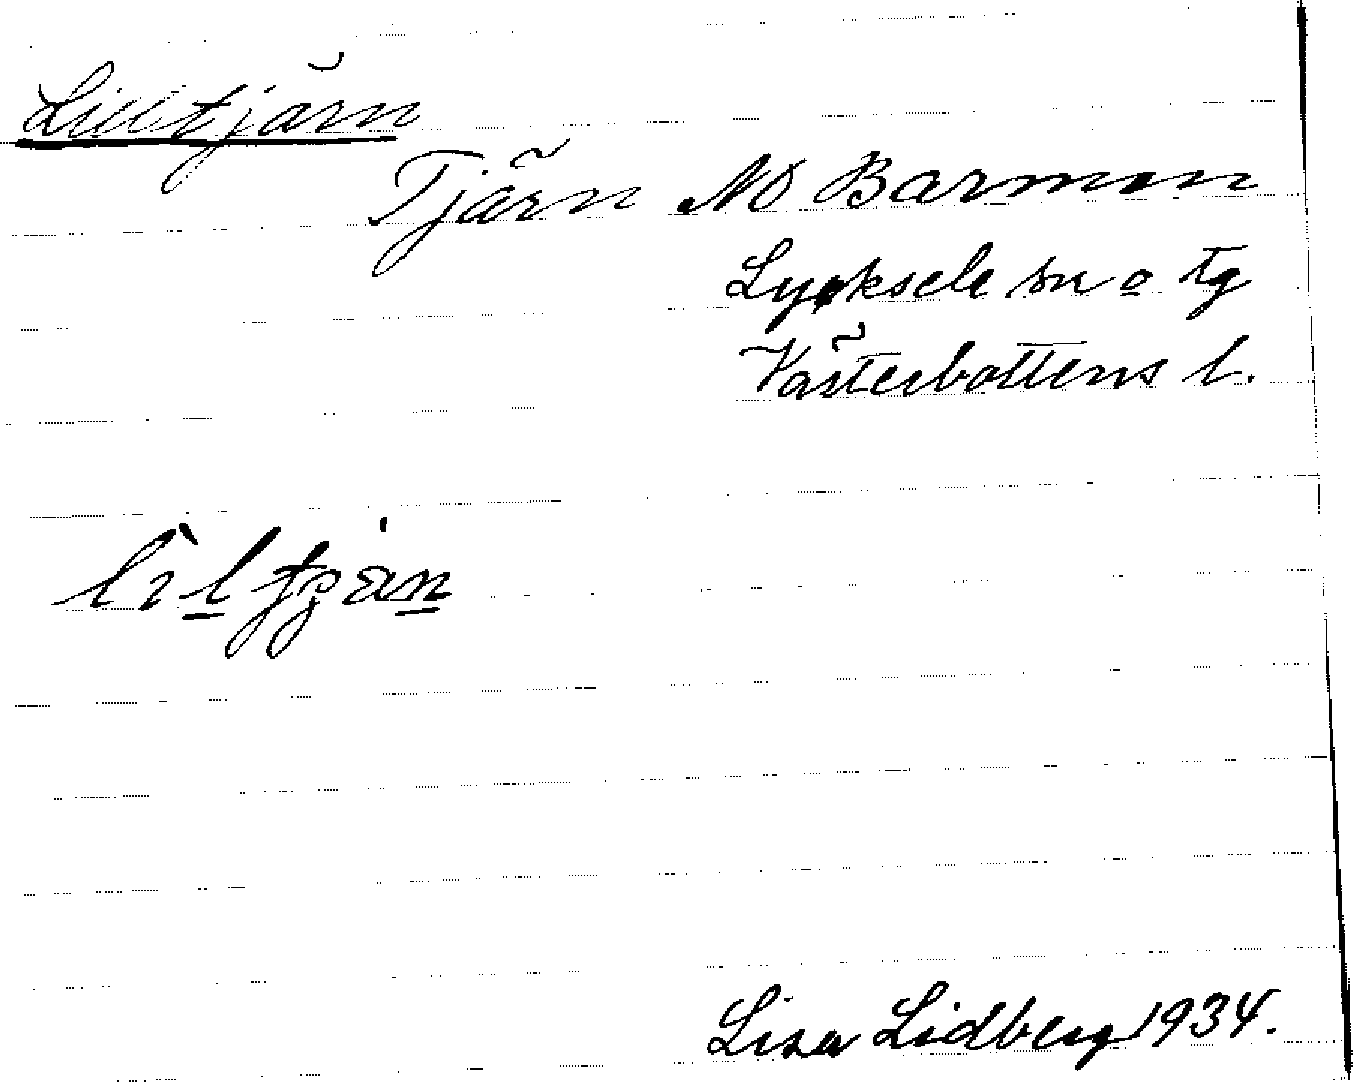 Lilltjärn
Tjärn NO Barmon
Lycksele sn o tg
Västerbottens l.
Lisa Lidberg 1934.